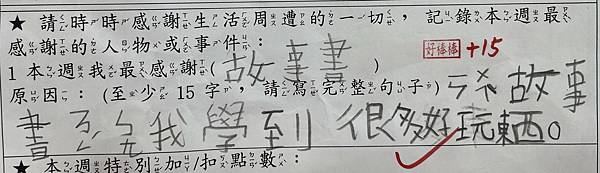 ★ 請時時感謝生活周遭的一切，記錄本週最
感謝的人物或事件：
1 本週我最感謝(故事書)
好棒棒 +15
原因：(至少 15 字，請寫完整句子) 故事
書 我學到很多好玩東西。
★ 本週特別加/扣點數：